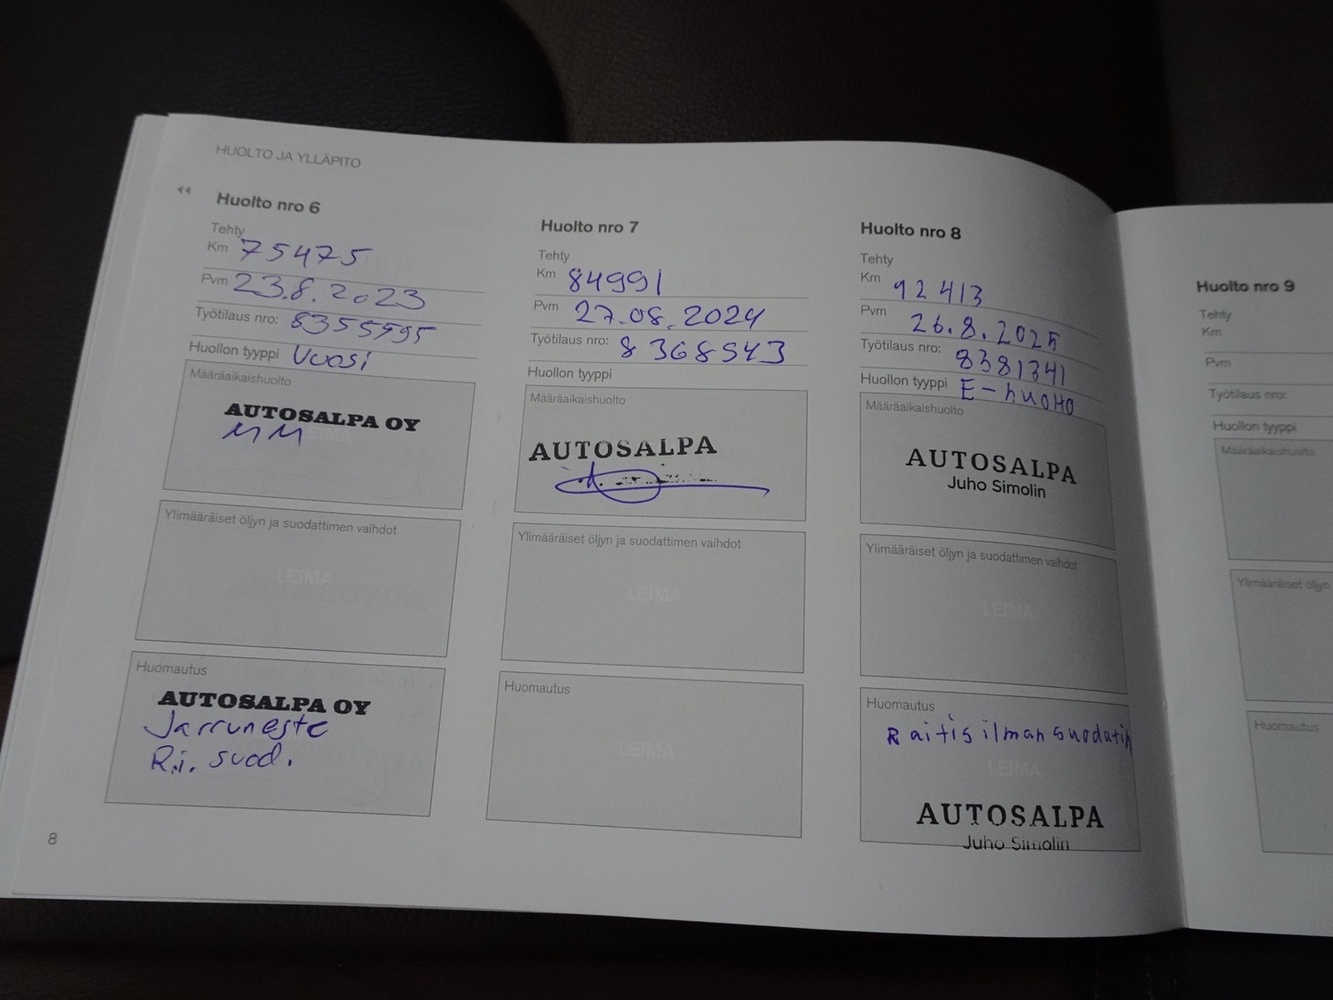 HUOLTO JA YLLÄPITO
Huolto nro 6
Tehty
Km 75475
Pvm 23.8.2023
Työtilaus nro: 8355595
Huollon tyyppi Vuosi
Määräaikaishuolto
AUTOSALPA OY
MM
LEIMA
Ylimääräiset öljyn ja suodattimen vaihdot
LEIMA
Huomautus
AUTOSALPA OY
Jarruneste
R.i. suod.
8
Huolto nro 7
Tehty
Km 84991
Pvm 27.08.2024
Työtilaus nro: 8368543
Huollon tyyppi
Määräaikaishuolto
AUTOSALPA
Ylimääräiset öljyn ja suodattimen vaihdot
LEIMA
Huomautus
LEIMA
Huolto nro 8
Tehty
Km 92413
Pvm 26.8.2025
Työtilaus nro: 8381341
Huollon tyyppi E-huolto
Määräaikaishuolto
AUTOSALPA
Juho Simolin
Ylimääräiset öljyn ja suodattimen vaihdot
LEIMA
Huomautus
Raitis ilman suodatin
LEIMA
AUTOSALPA
Juho Simolin
Huolto nro 9
Tehty
Km
Pvm
Työtilaus nro:
Huollon tyyppi
Määräaikaishuolto
Ylimääräiset öljyn
Huomautus